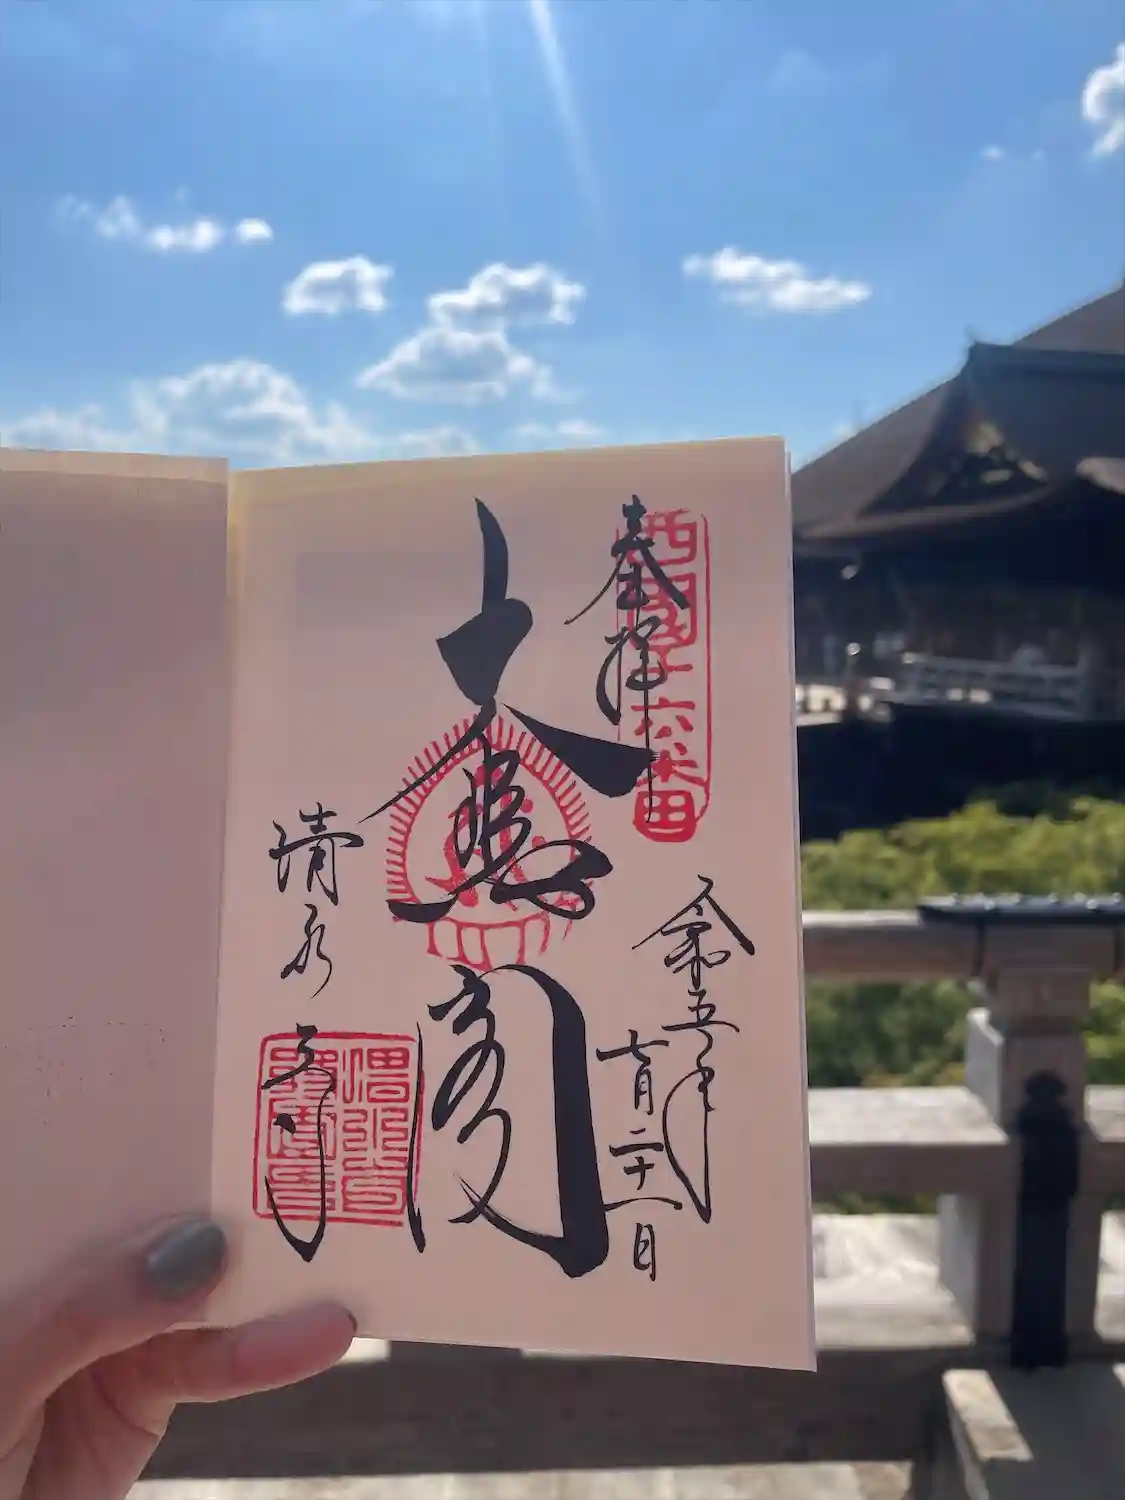 奉拝
西国十六番
令和五年
七月二十一日
大悲閣
清水寺